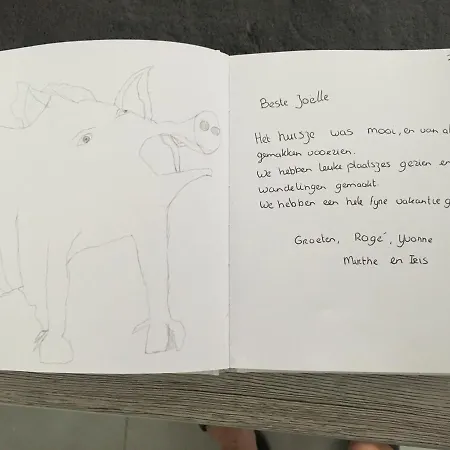 Beste Joëlle
Het huisje was mooi, en van al
gemakken voorzien.
We hebben leuke plaatsjes gezien en
wandelingen gemaakt.
We hebben een hele fijne vakantie g
Groeten, Rogé, Yvonne
Mirthe en Iris